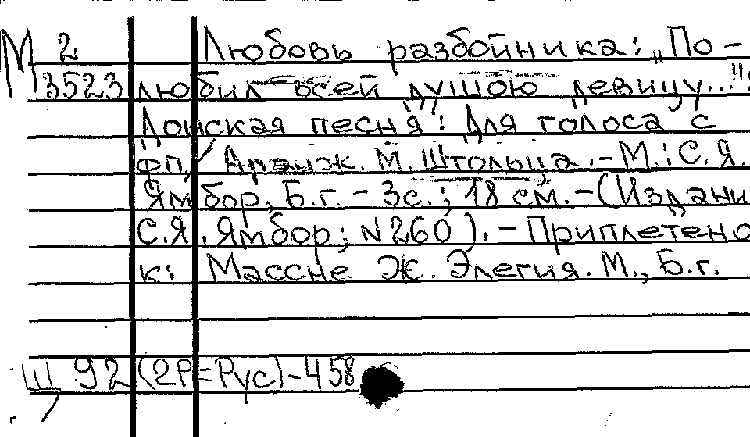 М 2 Любовь разбойника: „По-
3523 любил всей душою девицу...":
Донская песня: Для голоса с
фп. / Аранж. М. Штольца. - М.: С.Я.
Ямбор, Б.г. - 3с.; 18 см. - (Издани
С.Я. Ямбор; N260). - Приплетено
к: Массне Ж. Элегия. М., Б.г.
Ш 92 (2Р=Рус)-458